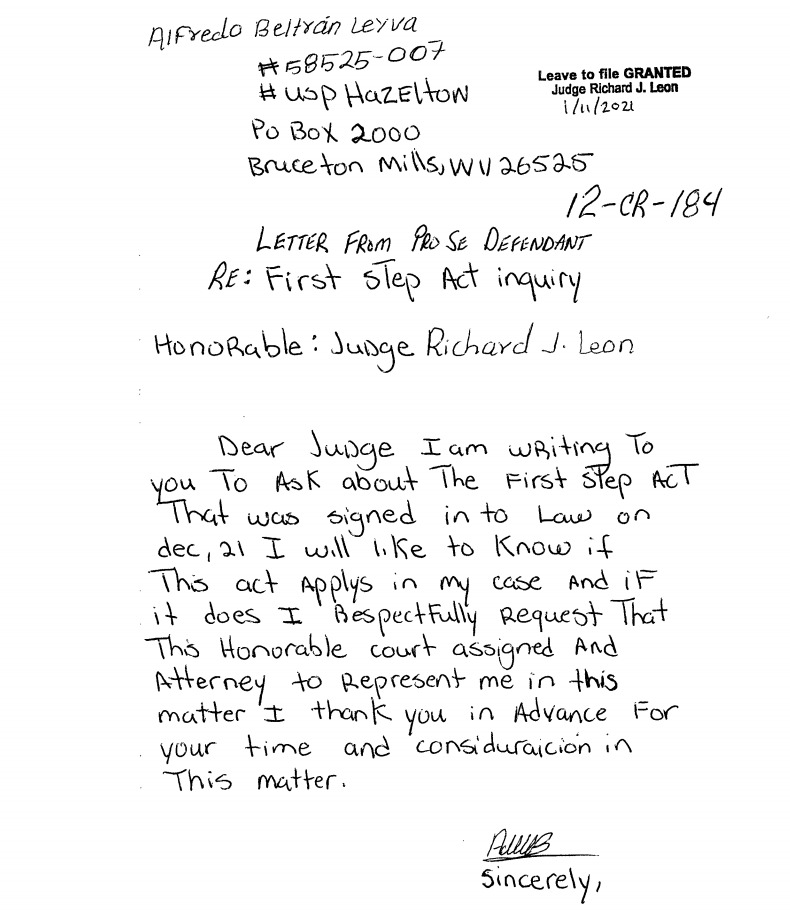 Alfredo Beltrán Leyva
#58525-007
# USP HAZELTON
PO BOX 2000
Bruceton Mills, WV 26525
Leave to file GRANTED
Judge Richard J. Leon
1/11/2021
12-CR-184
LETTER FROM PRO SE DEFENDANT
RE: First Step Act inquiry
Honorable: Judge Richard J. Leon
Dear Judge I am writing To
you To Ask about The First Step ACT
That was signed in to Law on
dec, 21 I will like to Know if
This act Applys in my case And if
it does I Respectfully Request That
This Honorable court assigned And
Atterney to Represent me in this
matter I thank you in Advance For
your time and considuraicion in
This matter.
Sincerely,